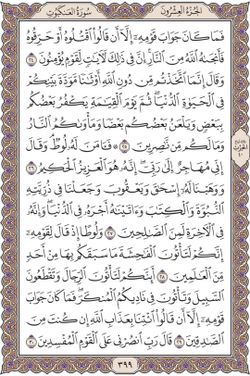 الجزء العشرون
سورة العنكبوت
فَمَا كَانَ جَوَابَ قَوْمِهِۦٓ إِلَّآ أَن قَالُوا۟ ٱقْتُلُوهُ أَوْ حَرِّقُوهُ
فَأَنجَىٰهُ ٱللَّهُ مِنَ ٱلنَّارِ إِنَّ فِى ذَٰلِكَ لَـَٔايَـٰتٍ لِّقَوْمٍ يُؤْمِنُونَ ٢٤
وَقَالَ إِنَّمَا ٱتَّخَذْتُم مِّن دُونِ ٱللَّهِ أَوْثَـٰنًا مَّوَدَّةَ بَيْنِكُمْ
فِى ٱلْحَيَوٰةِ ٱلدُّنْيَا ثُمَّ يَوْمَ ٱلْقِيَـٰمَةِ يَكْفُرُ بَعْضُكُم
بِبَعْضٍ وَيَلْعَنُ بَعْضُكُم بَعْضًا وَمَأْوَىٰكُمُ ٱلنَّارُ
وَمَا لَكُم مِّن نَّـٰصِرِينَ ٢٥ ۞ فَـَٔامَنَ لَهُۥ لُوطٌ وَقَالَ
إِنِّى مُهَاجِرٌ إِلَىٰ رَبِّىٓ إِنَّهُۥ هُوَ ٱلْعَزِيزُ ٱلْحَكِيمُ ٢٦
وَوَهَبْنَا لَهُۥٓ إِسْحَـٰقَ وَيَعْقُوبَ وَجَعَلْنَا فِى ذُرِّيَّتِهِ
ٱلنُّبُوَّةَ وَٱلْكِتَـٰبَ وَءَاتَيْنَـٰهُ أَجْرَهُۥ فِى ٱلدُّنْيَا وَإِنَّهُۥ
فِى ٱلْـَٔاخِرَةِ لَمِنَ ٱلصَّـٰلِحِينَ ٢٧ وَلُوطًا إِذْ قَالَ لِقَوْمِهِۦٓ
إِنَّكُمْ لَتَأْتُونَ ٱلْفَـٰحِشَةَ مَا سَبَقَكُم بِهَا مِنْ أَحَدٍ
مِّنَ ٱلْعَـٰلَمِينَ ٢٨ أَئِنَّكُمْ لَتَأْتُونَ ٱلرِّجَالَ وَتَقْطَعُونَ
ٱلسَّبِيلَ وَتَأْتُونَ فِى نَادِيكُمُ ٱلْمُنكَرَ فَمَا كَانَ جَوَابَ
قَوْمِهِۦٓ إِلَّآ أَن قَالُوا۟ ٱئْتِنَا بِعَذَابِ ٱللَّهِ إِن كُنتَ مِنَ
ٱلصَّـٰدِقِينَ ٢٩ قَالَ رَبِّ ٱنصُرْنِى عَلَى ٱلْقَوْمِ ٱلْمُفْسِدِينَ ٣٠
٣٩٩